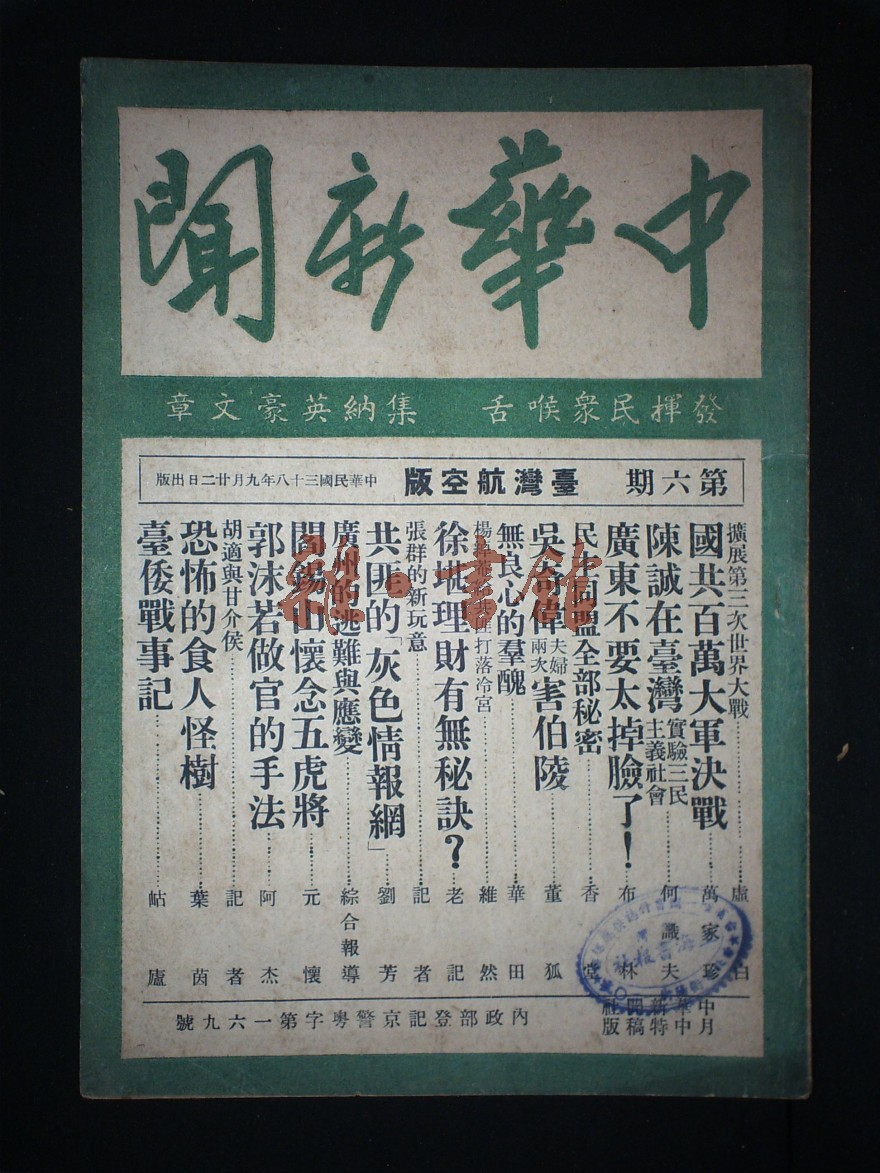 中華新聞
發揮民衆喉舌　集納英豪文章
第六期　臺灣航空版　中華民國三十八年九月廿二日出版
擴展第三次世界大戰…………虛白
國共百萬大軍決戰……萬家珍
陳誠在臺灣實驗三民主義社會…何識夫
廣東不要太掉臉了！布林
民才同盟全部秘密………香堂
吳奇偉夫婦兩次害伯陵……董狐
無良心的羣醜…………華田
打落冷宮…………維然
徐堪理財有無秘訣？老記
張群的新玩意…………記者
共匪的「灰色情報網」劉芳
廣州的逃難與應變………綜合報導
閻錫山懷念五虎將……元懷
郭沫若做官的手法……阿杰
胡適與甘介侯…………記者
恐怖的食人怪樹………葉茵
臺倭戰事記…………岵廬
中華新聞社
月中特稿版
內政部登記京警粵字第一六九號